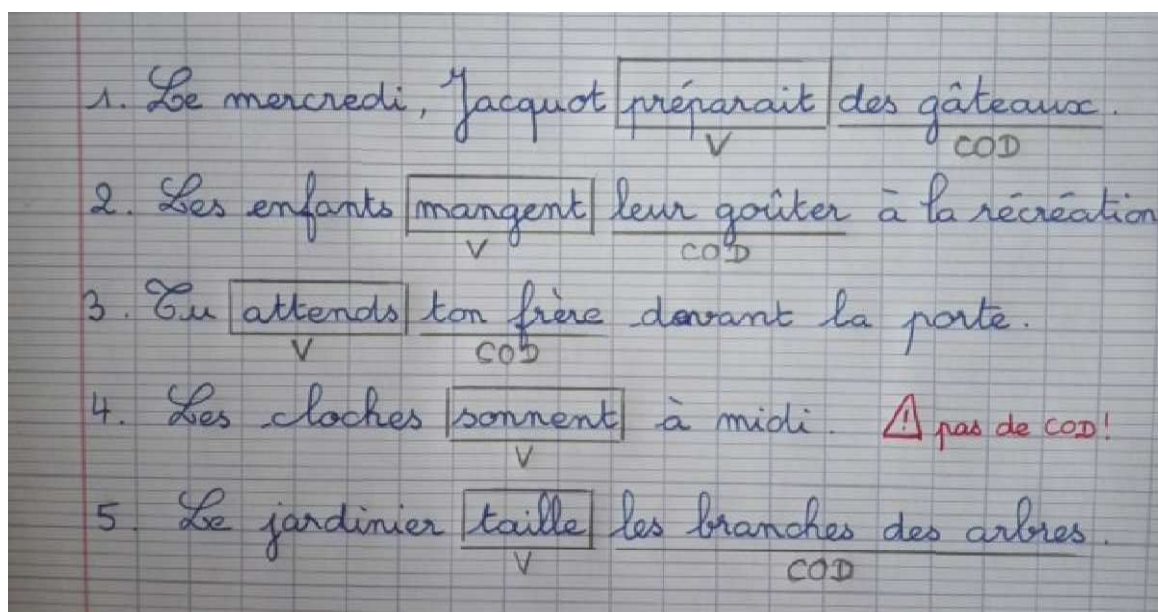 1. Le mercredi, Jacquot préparait des gâteaux.
V COD
2. Les enfants mangent leur goûter à la récréation
V COD
3. Tu attends ton frère devant la porte.
V COD
4. Les cloches sonnent à midi. ⚠ pas de COD!
V
5. Le jardinier taille les branches des arbres.
V COD